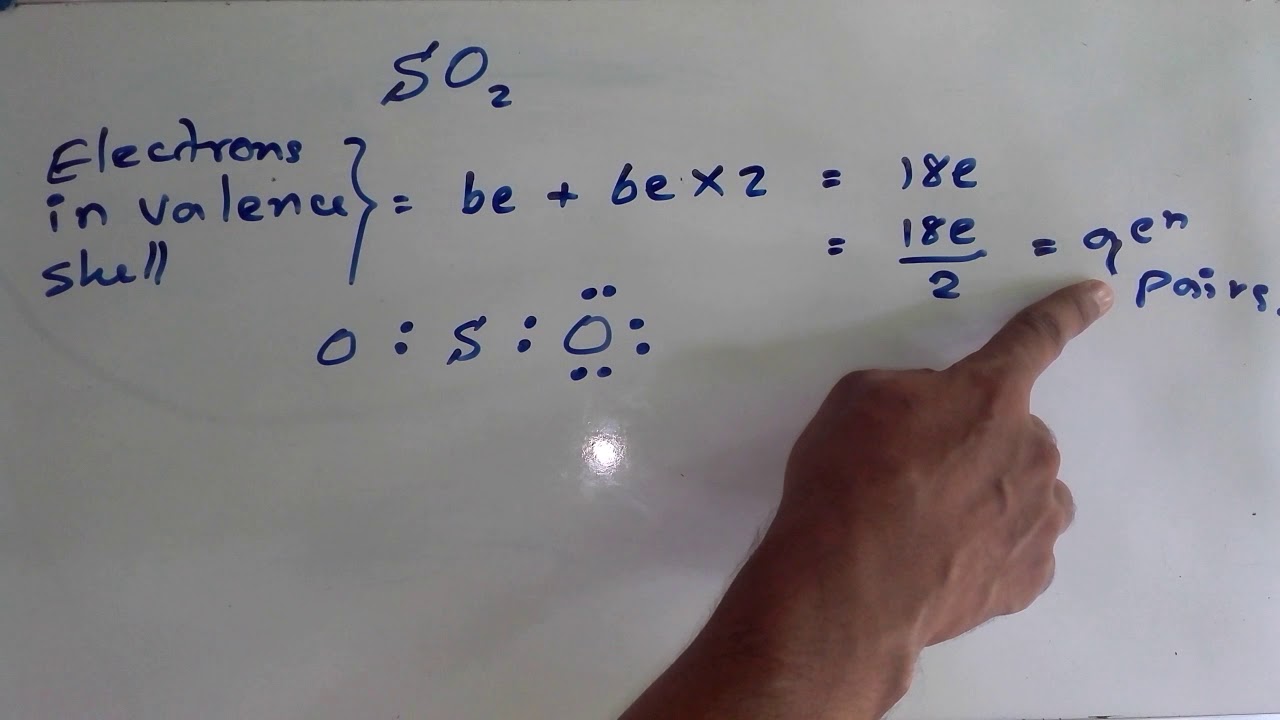 SO₂
Electrons
in valence
shell
} = 6e + 6e × 2 = 18e
= 18e/2 = 9 eⁿ
Pairs.
O : S : O :